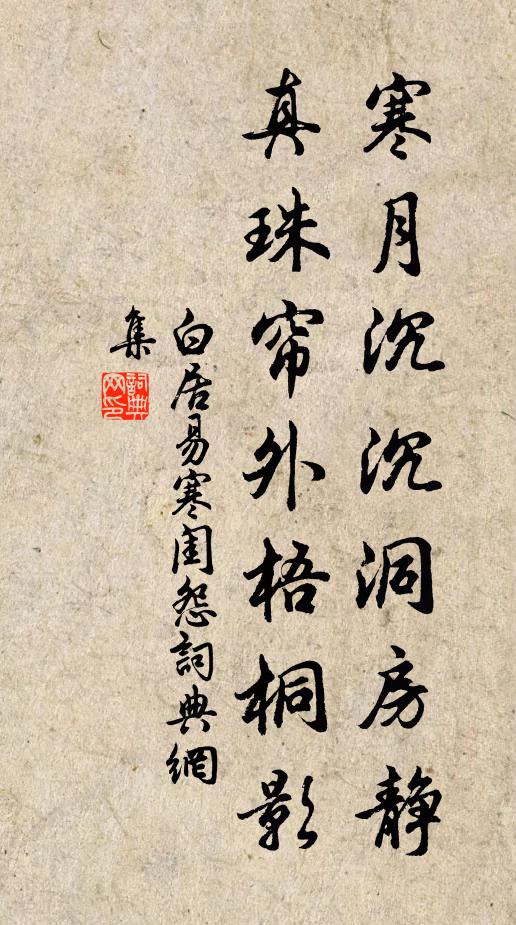 寒月沉沉洞房静
真珠帘外梧桐影
白居易寒闺怨詞典網
集
詞典网印